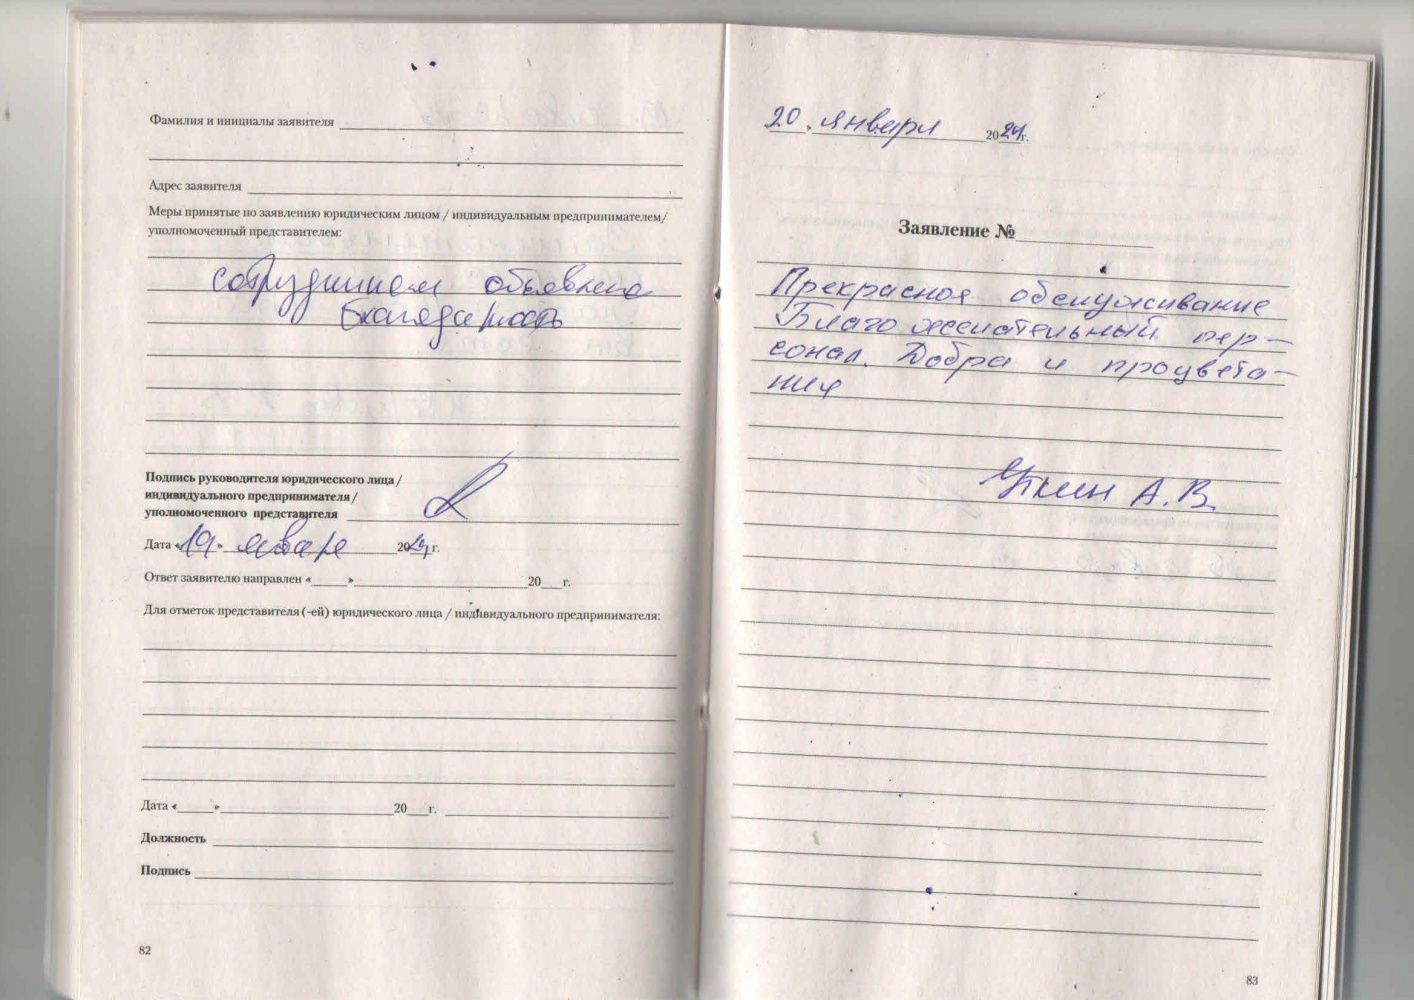 Фамилия и инициалы заявителя
Адрес заявителя
Меры принятые по заявлению юридическим лицом / индивидуальным предпринимателем/
уполномоченный представителем:
сотрудникам объявлена
благодарность
Подпись руководителя юридического лица /
индивидуального предпринимателя /
уполномоченного представителя
Дата «19» января 2024 г.
Ответ заявителю направлен «___» ___ 20__ г.
Для отметок представителя (-ей) юридического лица / индивидуального предпринимателя:
Дата «___» ___ 20__ г.
Должность
Подпись
82
20 января 2024 г.
Заявление №
Прекрасное обслуживание
Благожелательный пер-
сонал. Добра и процвета-
ния
А.В.
83